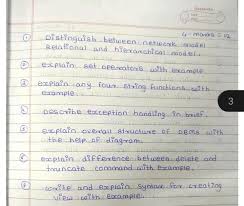 4-marks = 12
① Distinguish between network model
relational and hierarchical model.
② explain set operators with example
③ explain any four string functions with
example.
④ Describe exception handling in brief.
⑤ explain overall structure of DBMS with
the help of diagram.
⑥ explain difference between delete and
truncate command with example.
⑦ write and explain syntax for creating
view with example.
3